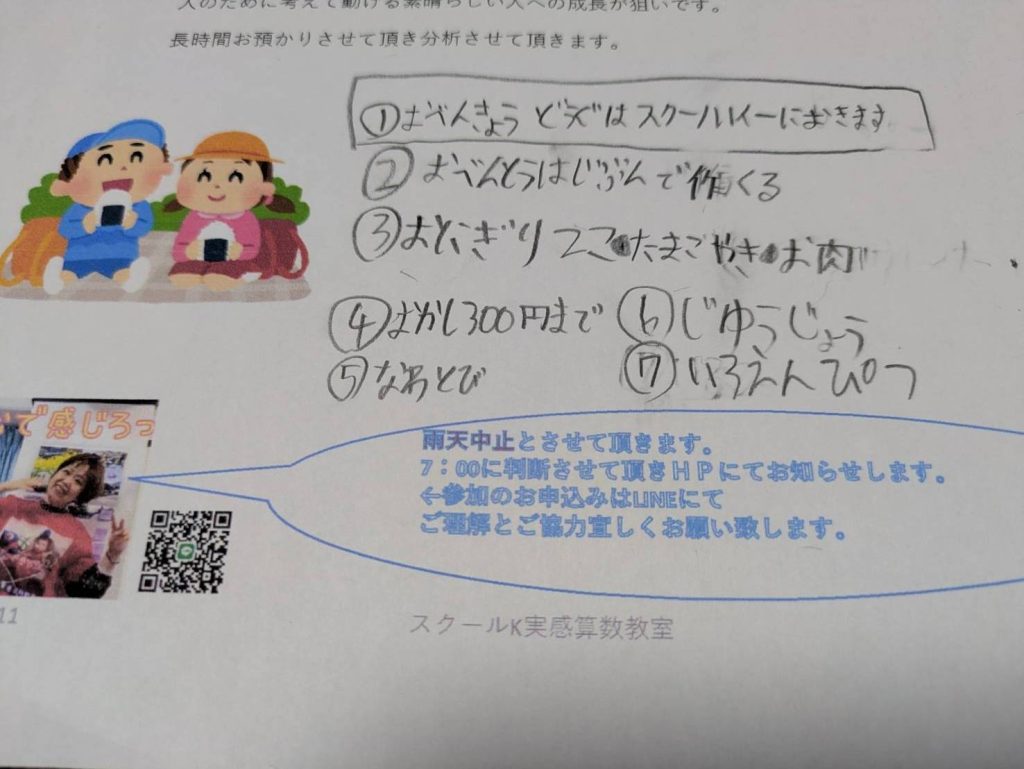 人のために考えて動ける素晴らしい人への成長が狙いです。
長時間お預かりさせて頂き分析させて頂きます。
①おべんきょう どうぐはスクールKイーにおきます
②おべんとうはじぶんで作くる
③おにぎり2こ・たまごやき・お肉
④おかし300円まで ⑥じゆうじょう
⑤なわとび ⑦いろえんぴつ
いで感じろっ
雨天中止とさせて頂きます。
7：00に判断させて頂きＨＰにてお知らせします。
←参加のお申込みはLINEにて
ご理解とご協力宜しくお願い致します。
11
スクールK実感算数教室